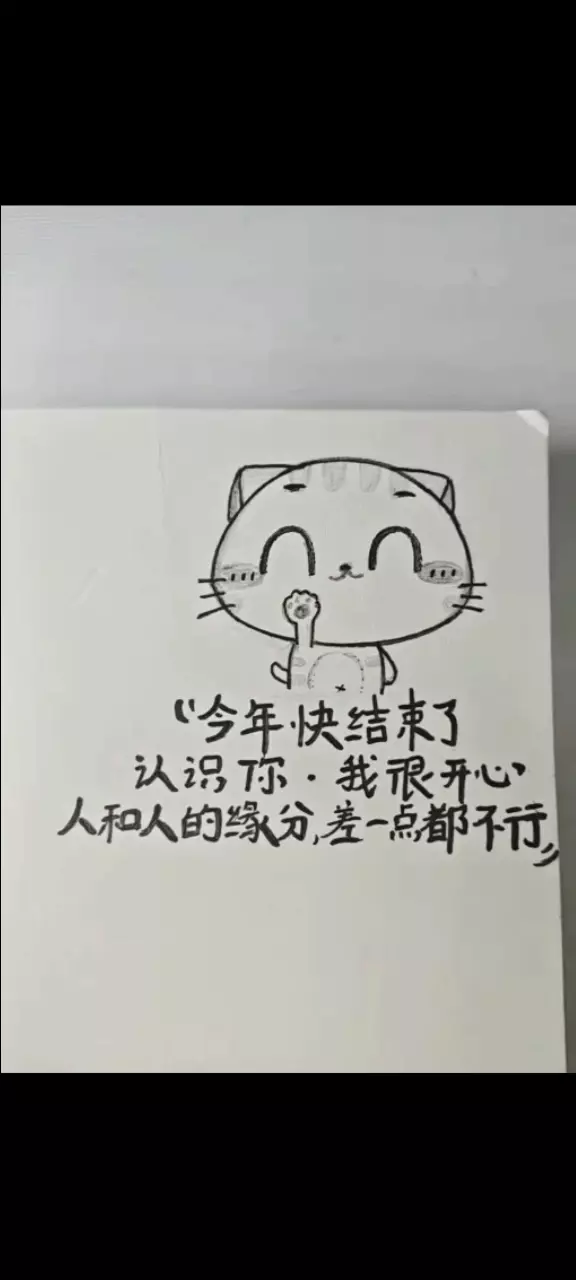 “今年快结束了
认识你·我很开心
人和人的缘分,差一点都不行”